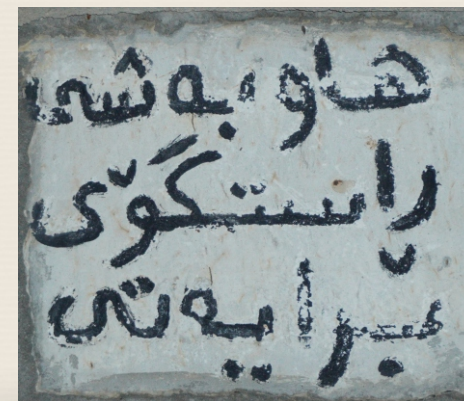 هاوبه‌شی
ڕاستگۆی
برایه‌تی